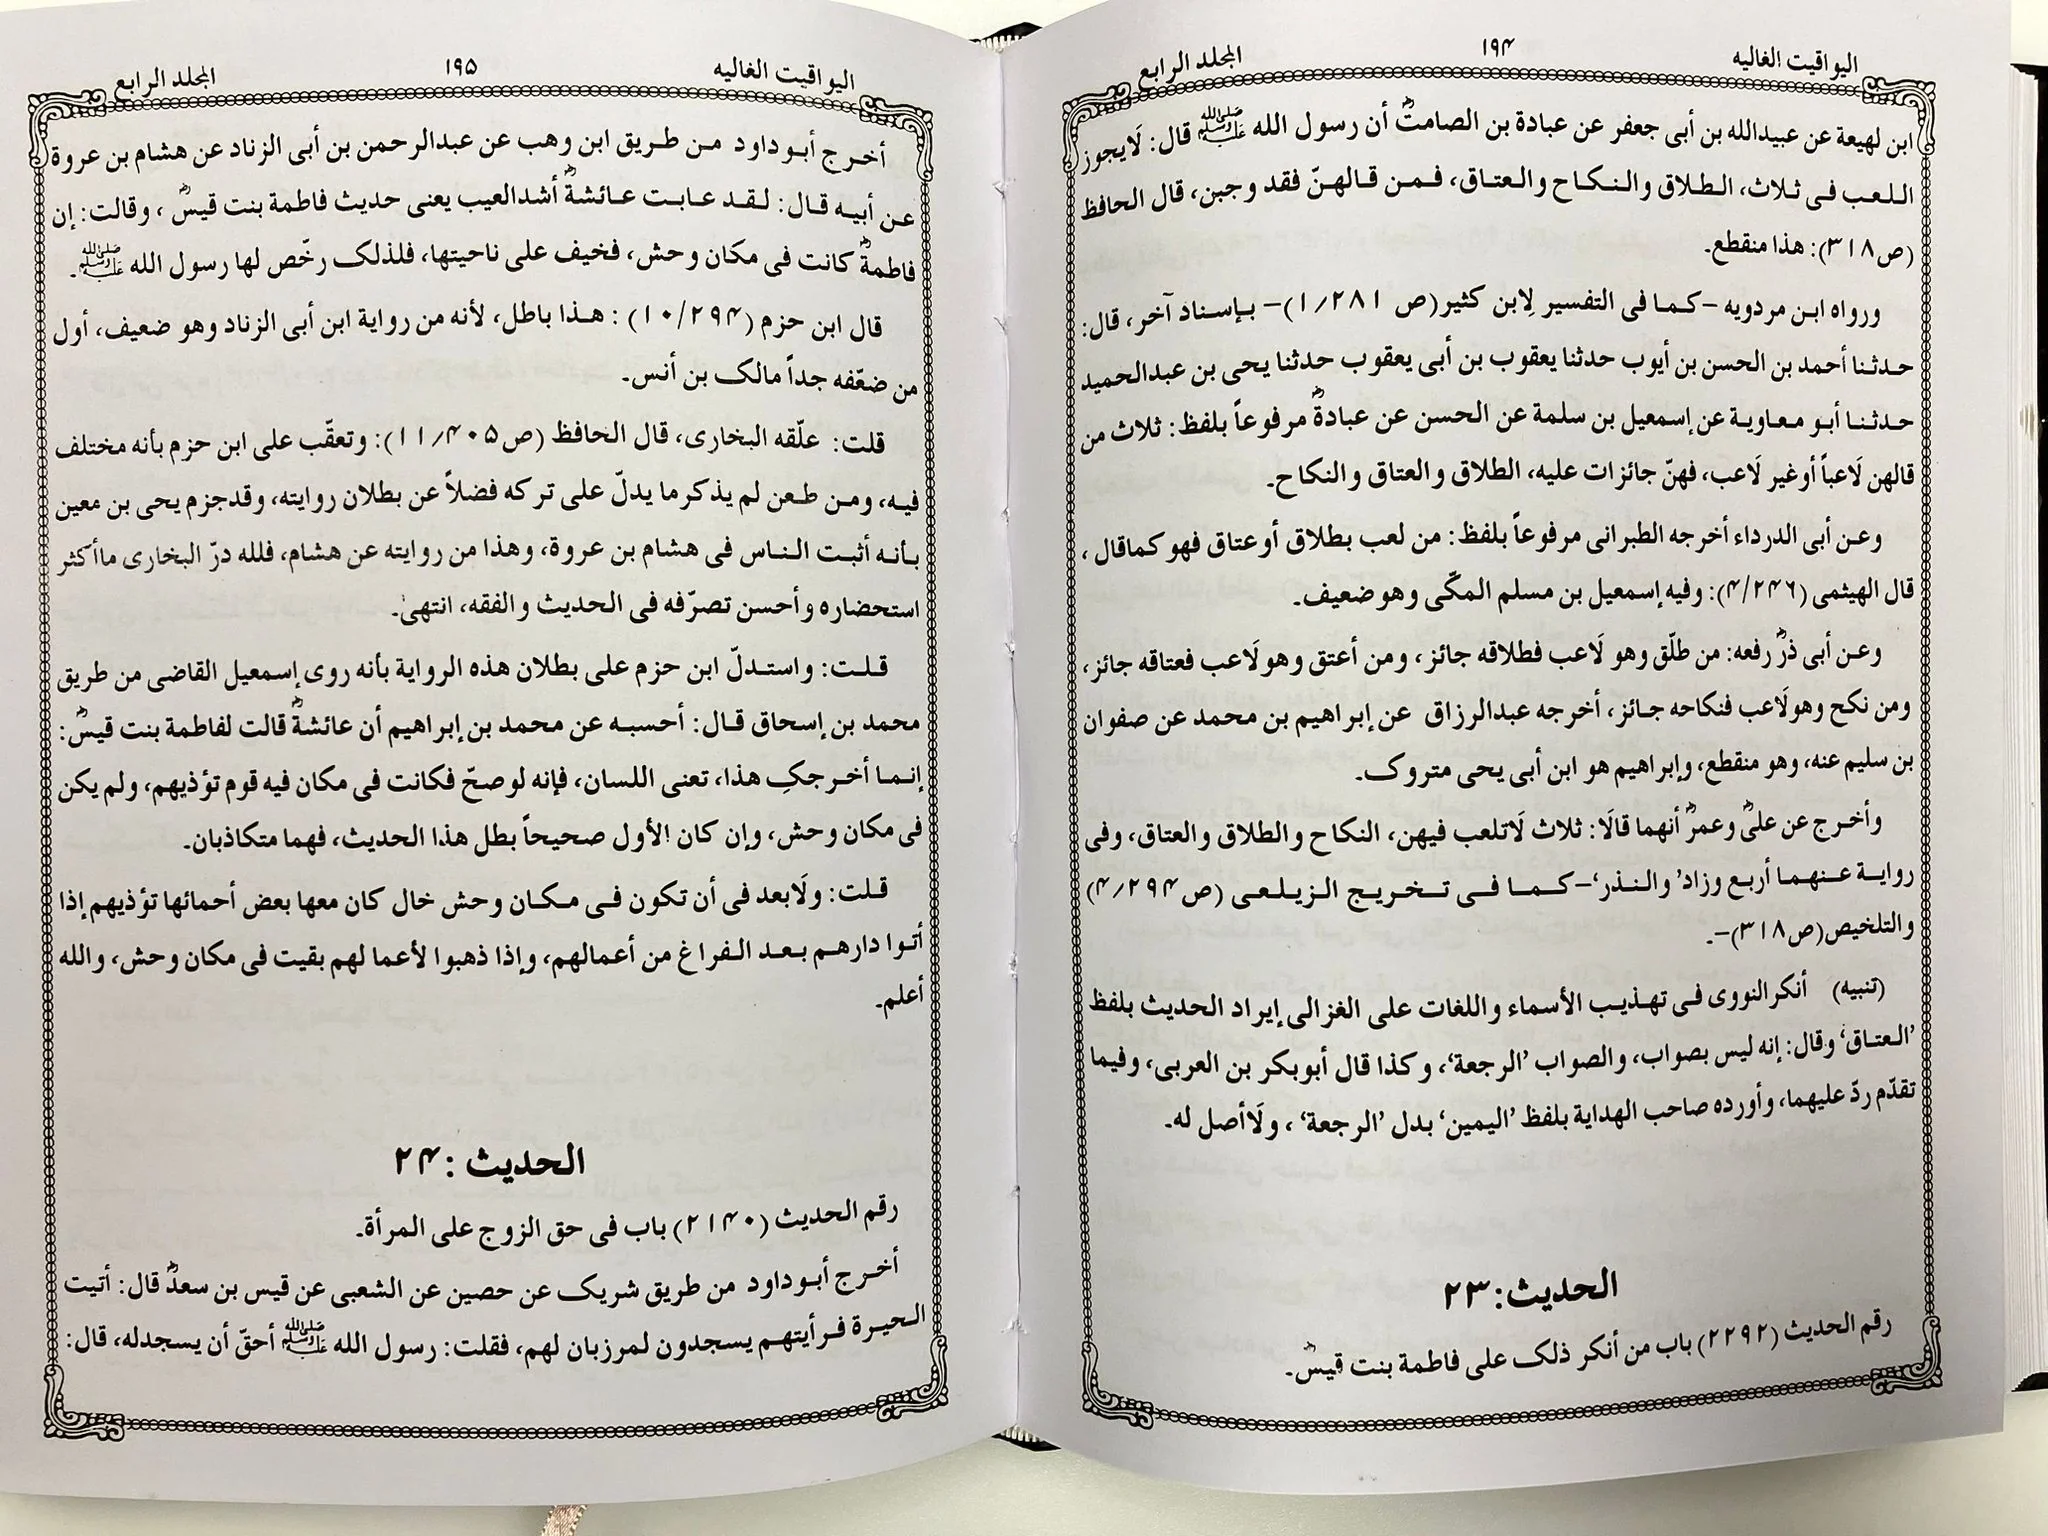 اليواقيت الغاليه ١٩۴ المجلد الرابع
ابن لهيعة عن عبيدالله بن أبى جعفر عن عبادة بن الصامتؓ أن رسول الله ﷺ قال: لَايجوز
اللعب فى ثلاث، الطلاق والنكاح والعتاق، فمن قالهنّ فقد وجبن، قال الحافظ
(ص٣١٨): هذا منقطع۔
ورواه ابن مردويه -كما فى التفسير لِابن كثير(ص ١/٢٨١)- بإسناد آخر، قال:
حدثنا أحمد بن الحسن بن أيوب حدثنا يعقوب بن أبى يعقوب حدثنا يحى بن عبدالحميد
حدثنا أبو معاوية عن إسمعيل بن سلمة عن الحسن عن عبادةؓ مرفوعاً بلفظ: ثلاث من
قالهن لَاعباً أوغير لَاعب، فهنّ جائزات عليه، الطلاق والعتاق والنكاح۔
وعن أبى الدرداء أخرجه الطبرانى مرفوعاً بلفظ: من لعب بطلاق أوعتاق فهو كماقال ،
قال الهيثمى (۴/٢۴٦): وفيه إسمعيل بن مسلم المكّى وهو ضعيف۔
وعن أبى ذرؓ رفعه: من طلّق وهو لَاعب فطلاقه جائز، ومن أعتق وهو لَاعب فعتاقه جائز،
ومن نكح وهو لَاعب فنكاحه جائز، أخرجه عبدالرزاق عن إبراهيم بن محمد عن صفوان
بن سليم عنه، وهو منقطع، وإبراهيم هو ابن أبى يحى متروك۔
وأخرج عن علىؓ وعمرؓ أنهما قالَا: ثلاث لَاتلعب فيهن، النكاح والطلاق والعتاق، وفى
رواية عنهما أربع وزاد’ والنذر‘-كما فى تخريج الزيلعى (ص۴/٢٩۴)
والتلخيص(ص٣١٨)-۔
(تنبيه) أنكرالنووى فى تهذيب الأسماء واللغات على الغزالى إيراد الحديث بلفظ
’العتاق‘ وقال: إنه ليس بصواب، والصواب ’الرجعة‘، وكذا قال أبوبكر بن العربى، وفيما
تقدّم ردّ عليهما، وأورده صاحب الهداية بلفظ ’اليمين‘ بدل ’الرجعة‘ ، ولَاأصل له۔
الحديث: ٢٣
رقم الحديث (٢٢٩٢) باب من أنكر ذلک على فاطمة بنت قيسؓ۔
اليواقيت الغاليه ١٩۵ المجلد الرابع
أخرج أبوداود من طريق ابن وهب عن عبدالرحمن بن أبى الزناد عن هشام بن عروة
عن أبيه قال: لقد عابت عائشةؓ أشدالعيب يعنى حديث فاطمة بنت قيسؓ ، وقالت: إن
فاطمةؓ كانت فى مكان وحش، فخيف على ناحيتها، فلذلک رخّص لها رسول الله ﷺ۔
قال ابن حزم (١٠/٢٩۴) : هذا باطل، لأنه من رواية ابن أبى الزناد وهو ضعيف، أول
من ضعّفه جداً مالک بن أنس۔
قلت: علّقه البخارى، قال الحافظ (ص١١/۴٠۵): وتعقّب على ابن حزم بأنه مختلف
فيه، ومن طعن لم يذكرما يدلّ على تركه فضلاً عن بطلان روايته، وقدجزم يحى بن معين
بأنه أثبت الناس فى هشام بن عروة، وهذا من روايته عن هشام، فلله درّ البخارى ماأكثر
استحضاره وأحسن تصرّفه فى الحديث والفقه، انتهىٰ۔
قلت: واستدلّ ابن حزم على بطلان هذه الرواية بأنه روى إسمعيل القاضى من طريق
محمد بن إسحاق قال: أحسبه عن محمد بن إبراهيم أن عائشةؓ قالت لفاطمة بنت قيسؓ:
إنما أخرجکِ هذا، تعنى اللسان، فإنه لوصحّ فكانت فى مكان فيه قوم تؤذيهم، ولم يكن
فى مكان وحش، وإن كان الأول صحيحاً بطل هذا الحديث، فهما متكاذبان۔
قلت: ولَابعد فى أن تكون فى مكان وحش خال كان معها بعض أحمائها تؤذيهم إذا
أتوا دارهم بعد الفراغ من أعمالهم، وإذا ذهبوا لأعما لهم بقيت فى مكان وحش، والله
أعلم۔
الحديث :٢۴
رقم الحديث (٢١۴٠) باب فى حق الزوج على المرأة۔
أخرج أبوداود من طريق شريک عن حصين عن الشعبى عن قيس بن سعدؓ قال: أتيت
الحيرة فرأيتهم يسجدون لمرزبان لهم، فقلت: رسول الله ﷺ أحقّ أن يسجدله، قال: